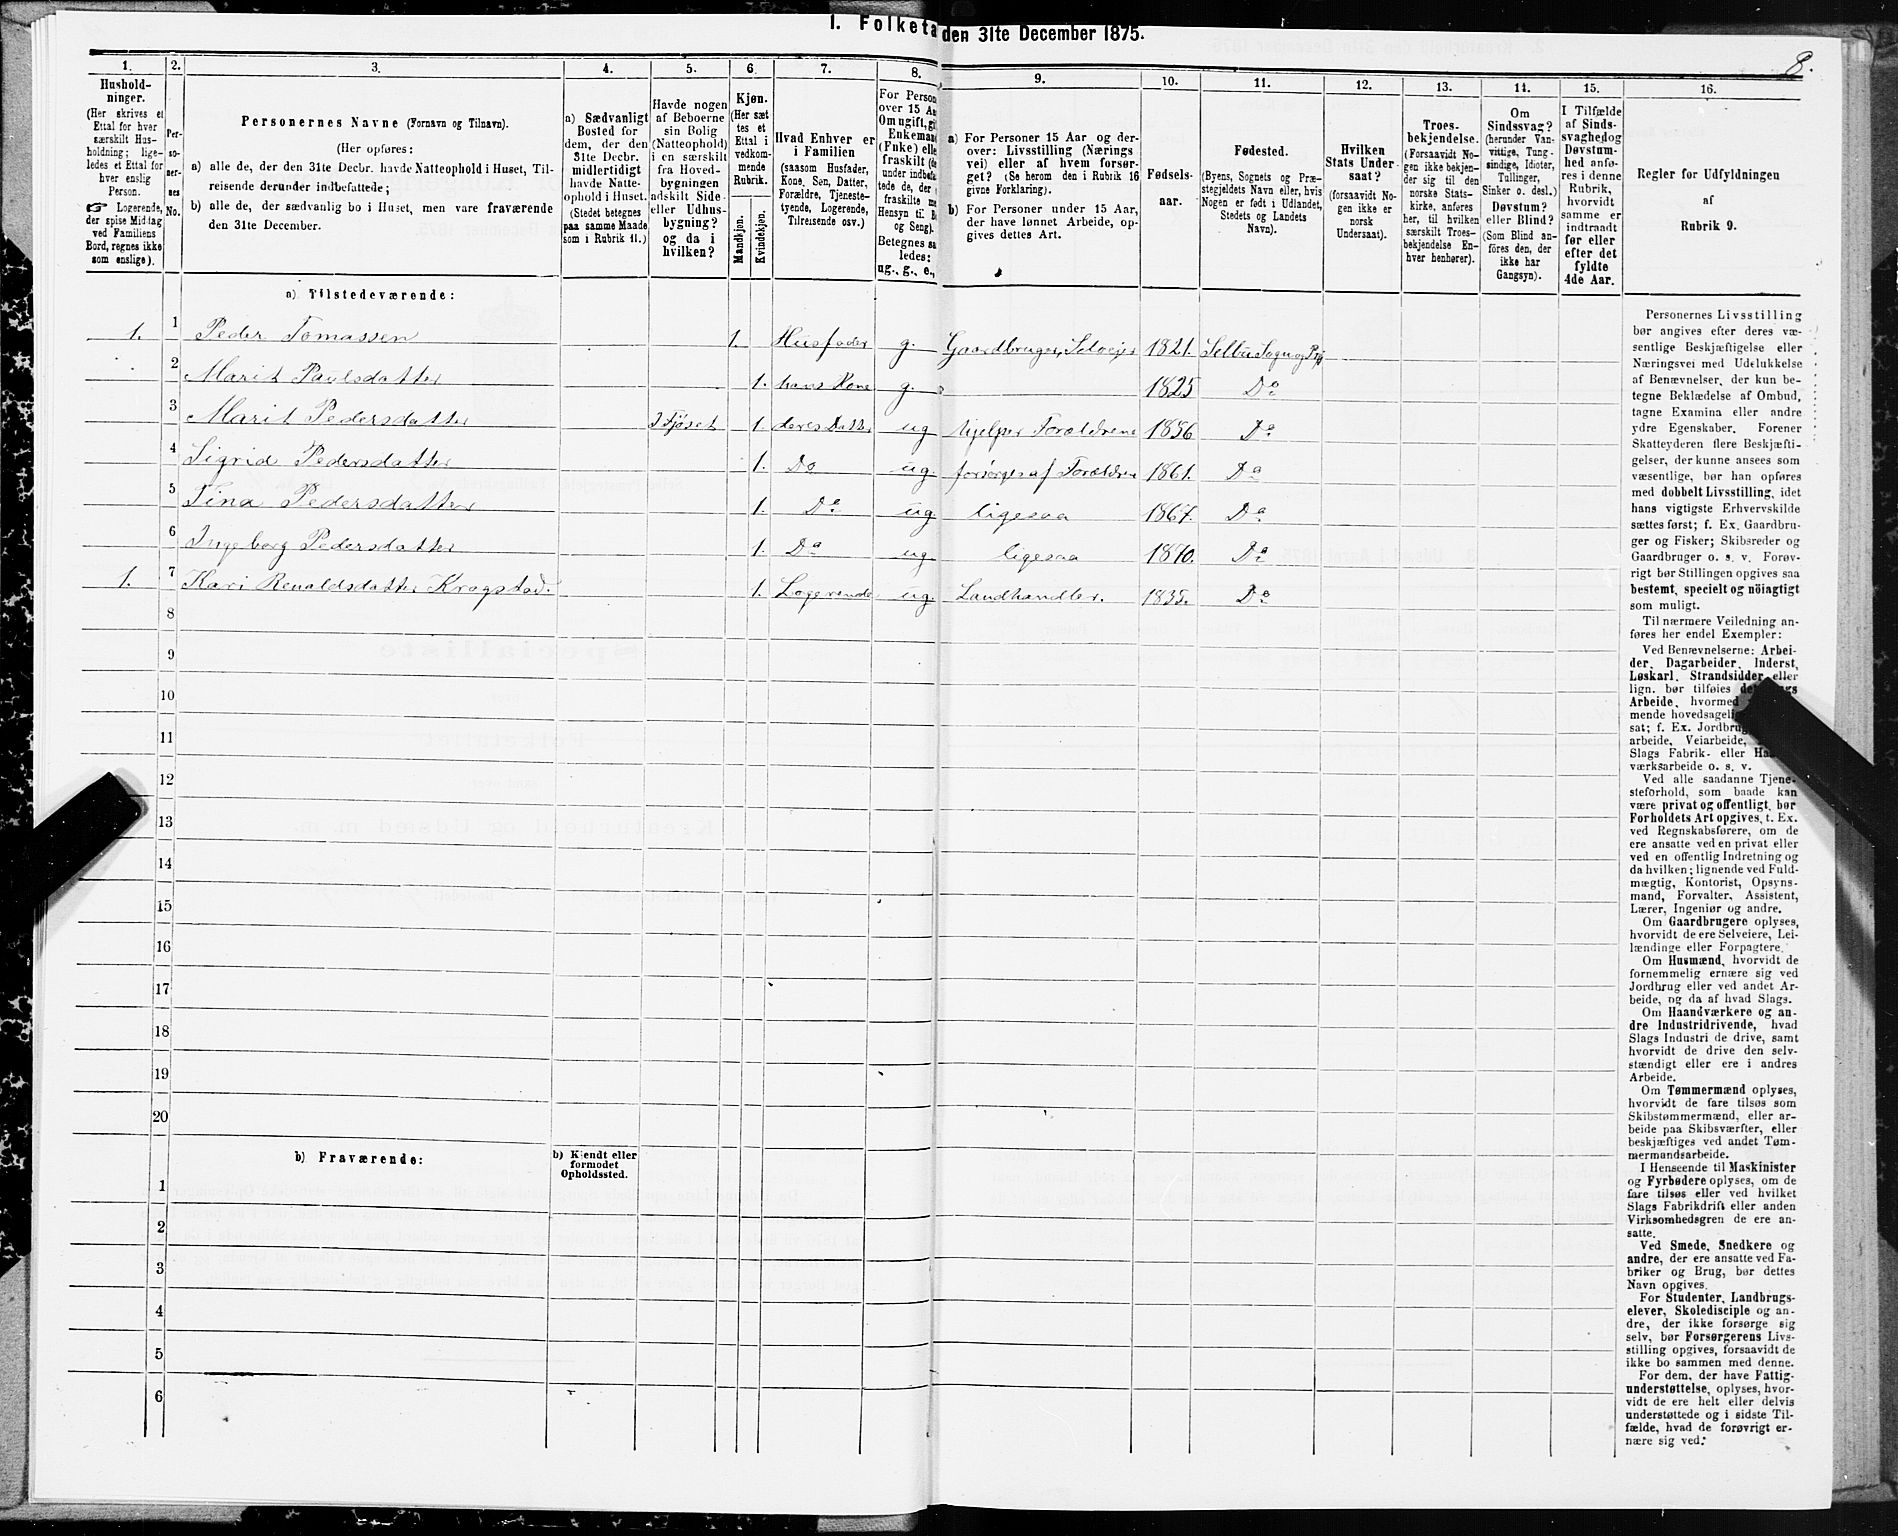 1. Folketa den 31te December 1875.
8.
1. 2. 3. 4. 5. 6. 7. 8. 9. 10. 11. 12. 13. 14. 15. 16.
Hushold-
ninger.
(Her skrives et
Ettal for hver
særskilt Hus-
holdning; lige-
ledes et Ettal for
hver enslig
Person.
☞ Logerende,
der spise Middag
ved Familiens
Bord, regnes ikke
som enslige).
Per-
so-
ner-
nes
No.
Personernes Navne (Fornavn og Tilnavn).
(Her opføres:
a) alle de, der den 31te Decbr. havde Natteophold i Huset, Til-
reisende derunder indbefattede;
b) alle de, der sædvanlig bo i Huset, men vare fraværende
den 31te December.
a) Sædvanligt
Bosted for
dem, der den
31te Decbr.
midlertidigt
havde Natte-
ophold i Huset.
(Stedet betegnes
paa samme Maade
som i Rubrik 11.)
Havde nogen
af Beboerne
sin Bolig
(Natteophold)
i en særskilt
fra Hoved-
bygningen
adskilt Side-
eller Udhus-
bygning?
og da i
hvilken?
Kjøn.
(Her sæt
tes et
Ettal i
vedkom-
mende
Rubrik.
Mandkjøn.
Kvindekjøn.
Hvad Enhver er
i Familien
(saasom Husfader,
Kone, Søn, Datter,
Forældre, Tjeneste-
tyende, Logerende,
Tilreisende osv.)
For Person
over 15 Aa
Om ugift, gi
Enkeman
(Enke) elle
fraskilt (de
under indbefa
tede de, der
fraskilte me
Hensyn til B
og Seng).
Betegnes sa
ledes:
ug., g., e.,
a) For Personer 15 Aar og der-
over: Livsstilling (Nærings
vei) eller af hvem forsør-
get? (Se herom den i Rubrik 16
givne Forklaring).
b) For Personer under 15 Aar,
der have lønnet Arbeide, op-
gives dettes Art.
Fødsels-
aar.
Fødested.
(Byens, Sognets og Præ-
stegjeldets Navn eller, hvis
Nogen er født i Udlandet,
Stedets og Landets
Navn).
Hvilken
Stats Under-
saat?
(forsaavidt No-
gen ikke er
norsk
Undersaat).
Troes-
bekjendelse.
(Forsaavidt No-
gen ikke bekjen-
der sig til den
norske Stats-
kirke, anføres
her, til hvilken
særskilt Troes-
bekjendelse En-
hver henhører).
Om
Sindssvag?
(herunder Van-
vittige, Tung-
sindige, Idioter,
Tullinger,
Sinker o. desl.)
Døvstum?
eller Blind?
(Som Blind an-
føres den, der
ikke har
Gangsyn).
I Tilfælde
af Sinds-
svaghed og
Døvstum-
hed anfø-
res i denne
Rubrik,
hvorvidt
samme er
indtraadt
før eller
efter det
fyldte
4de Aar.
Regler for Udfyldningen
af
Rubrik 9.
a) Tilstedeværende:
1. 1 Peder Tomassen 1. Husfader g. Gaardbruger, Selveier 1821. Selbu Sogn og Prgj
2 Marit Paulsdatter 1. hans Kone g. 1825 Do
3 Marit Pedersdatter I Fjøset 1. deres Datter ug hjelper Forældrene 1856 Do
4 Sigrid Pedersdatter 1. Do ug. forsørges af Forældrene 1861. Do
5 Tina Pedersdatter 1. Do ug. ligesaa 1867. Do
6 Ingeborg Pedersdatter 1. Do ug. ligesaa 1870. Do
1. 7 Kari Renaldsdatter Kragstad. 1. Logerende ug. Landhandler. 1835. Do
8
9
10
11
12
13
14
15
16
17
18
19
20
b) Fraværende:
b) Kjendt eller
formodet
Opholdssted.
1
2
3
4
5
6
Personernes Livsstilling
bør angives efter deres væ-
sentlige Beskjæftigelse eller
Næringsvei med Udelukkelse
af Benævnelser, der kun be-
tegne Beklædelse af Ombud,
tagne Examina eller andre
ydre Egenskaber. Forener
Skatteyderen flere Beskjæfti-
gelser, der kunne ansees som
væsentlige, bør han opføres
med dobbelt Livsstilling, idet
hans vigtigste Erhvervskilde
sættes først; f. Ex. Gaardbru-
ger og Fisker; Skibsreder og
Gaardbruger o. s. v. Forøv-
rigt bør Stillingen opgives saa
bestemt, specielt og nöiagtigt
som muligt.
Til nærmere Veiledning an-
føres her endel Exempler:
Ved Benævnelserne: Arbei-
der, Dagarbeider, Inderst,
Løskarl, Strandsidder eller
lign. bør tilføies
Arbeide, hvormed
mende hovedsagelig
sat; f. Ex. Jordbrug
arbeide, Veiarbeide,
Slags Fabrik- eller
værksarbeide o. s. v.
Ved alle saadanne Tjene-
steforhold, som baade kan
være privat og offentligt, bør
Forholdets Art opgives, t. Ex.
ved Regnskabsførere, om de
ere ansatte ved en privat eller
ved en offentlig Indretning og
da hvilken; lignende ved Fuld-
mægtig, Kontorist, Opsyns-
mand, Forvalter, Assistent,
Lærer, Ingeniør og andre.
Om Gaardbrugere oplyses,
hvorvidt de ere Selveiere, Lei-
lændinge eller Forpagtere.
Om Husmænd, hvorvidt de
fornemmelig ernære sig ved
Jordbrug eller ved andet Ar-
beide, og da af hvad Slags.
Om Haandværkere og an-
dre Industridrivende, hvad
Slags Industri de drive, samt
hvorvidt de drive den selv-
stændigt eller ere i andres
Arbeide.
Om Tømmermænd oplyses,
hvorvidt de fare tilsøs som
Skibstømmermænd, eller ar-
beide paa Skibsværfter, eller
beskjæftiges ved andet Tøm-
mermandsarbeide.
I Henseende til Maskinister
og Fyrbødere oplyses, om de
fare tilsøs eller ved hvilket
Slags Fabrikdrift eller anden
Virksomhedsgren de ere an-
satte.
Ved Smede, Snedkere og
andre, der ere ansatte ved Fa-
briker og Brug, bør dettes
Navn opgives.
For Studenter, Landbrugs-
elever, Skoledisciple og an-
dre, der ikke forsørge sig
selv, bør Forsørgerens Livs-
stilling opgives, forsaavidt de
ikke bo sammen med denne.
For dem, der have Fattig-
understøttelse, oplyses, hvor-
vidt de ere helt eller delvis
understøttede og i sidste Til-
fælde, hvad de forøvrigt er-
nære sig ved.